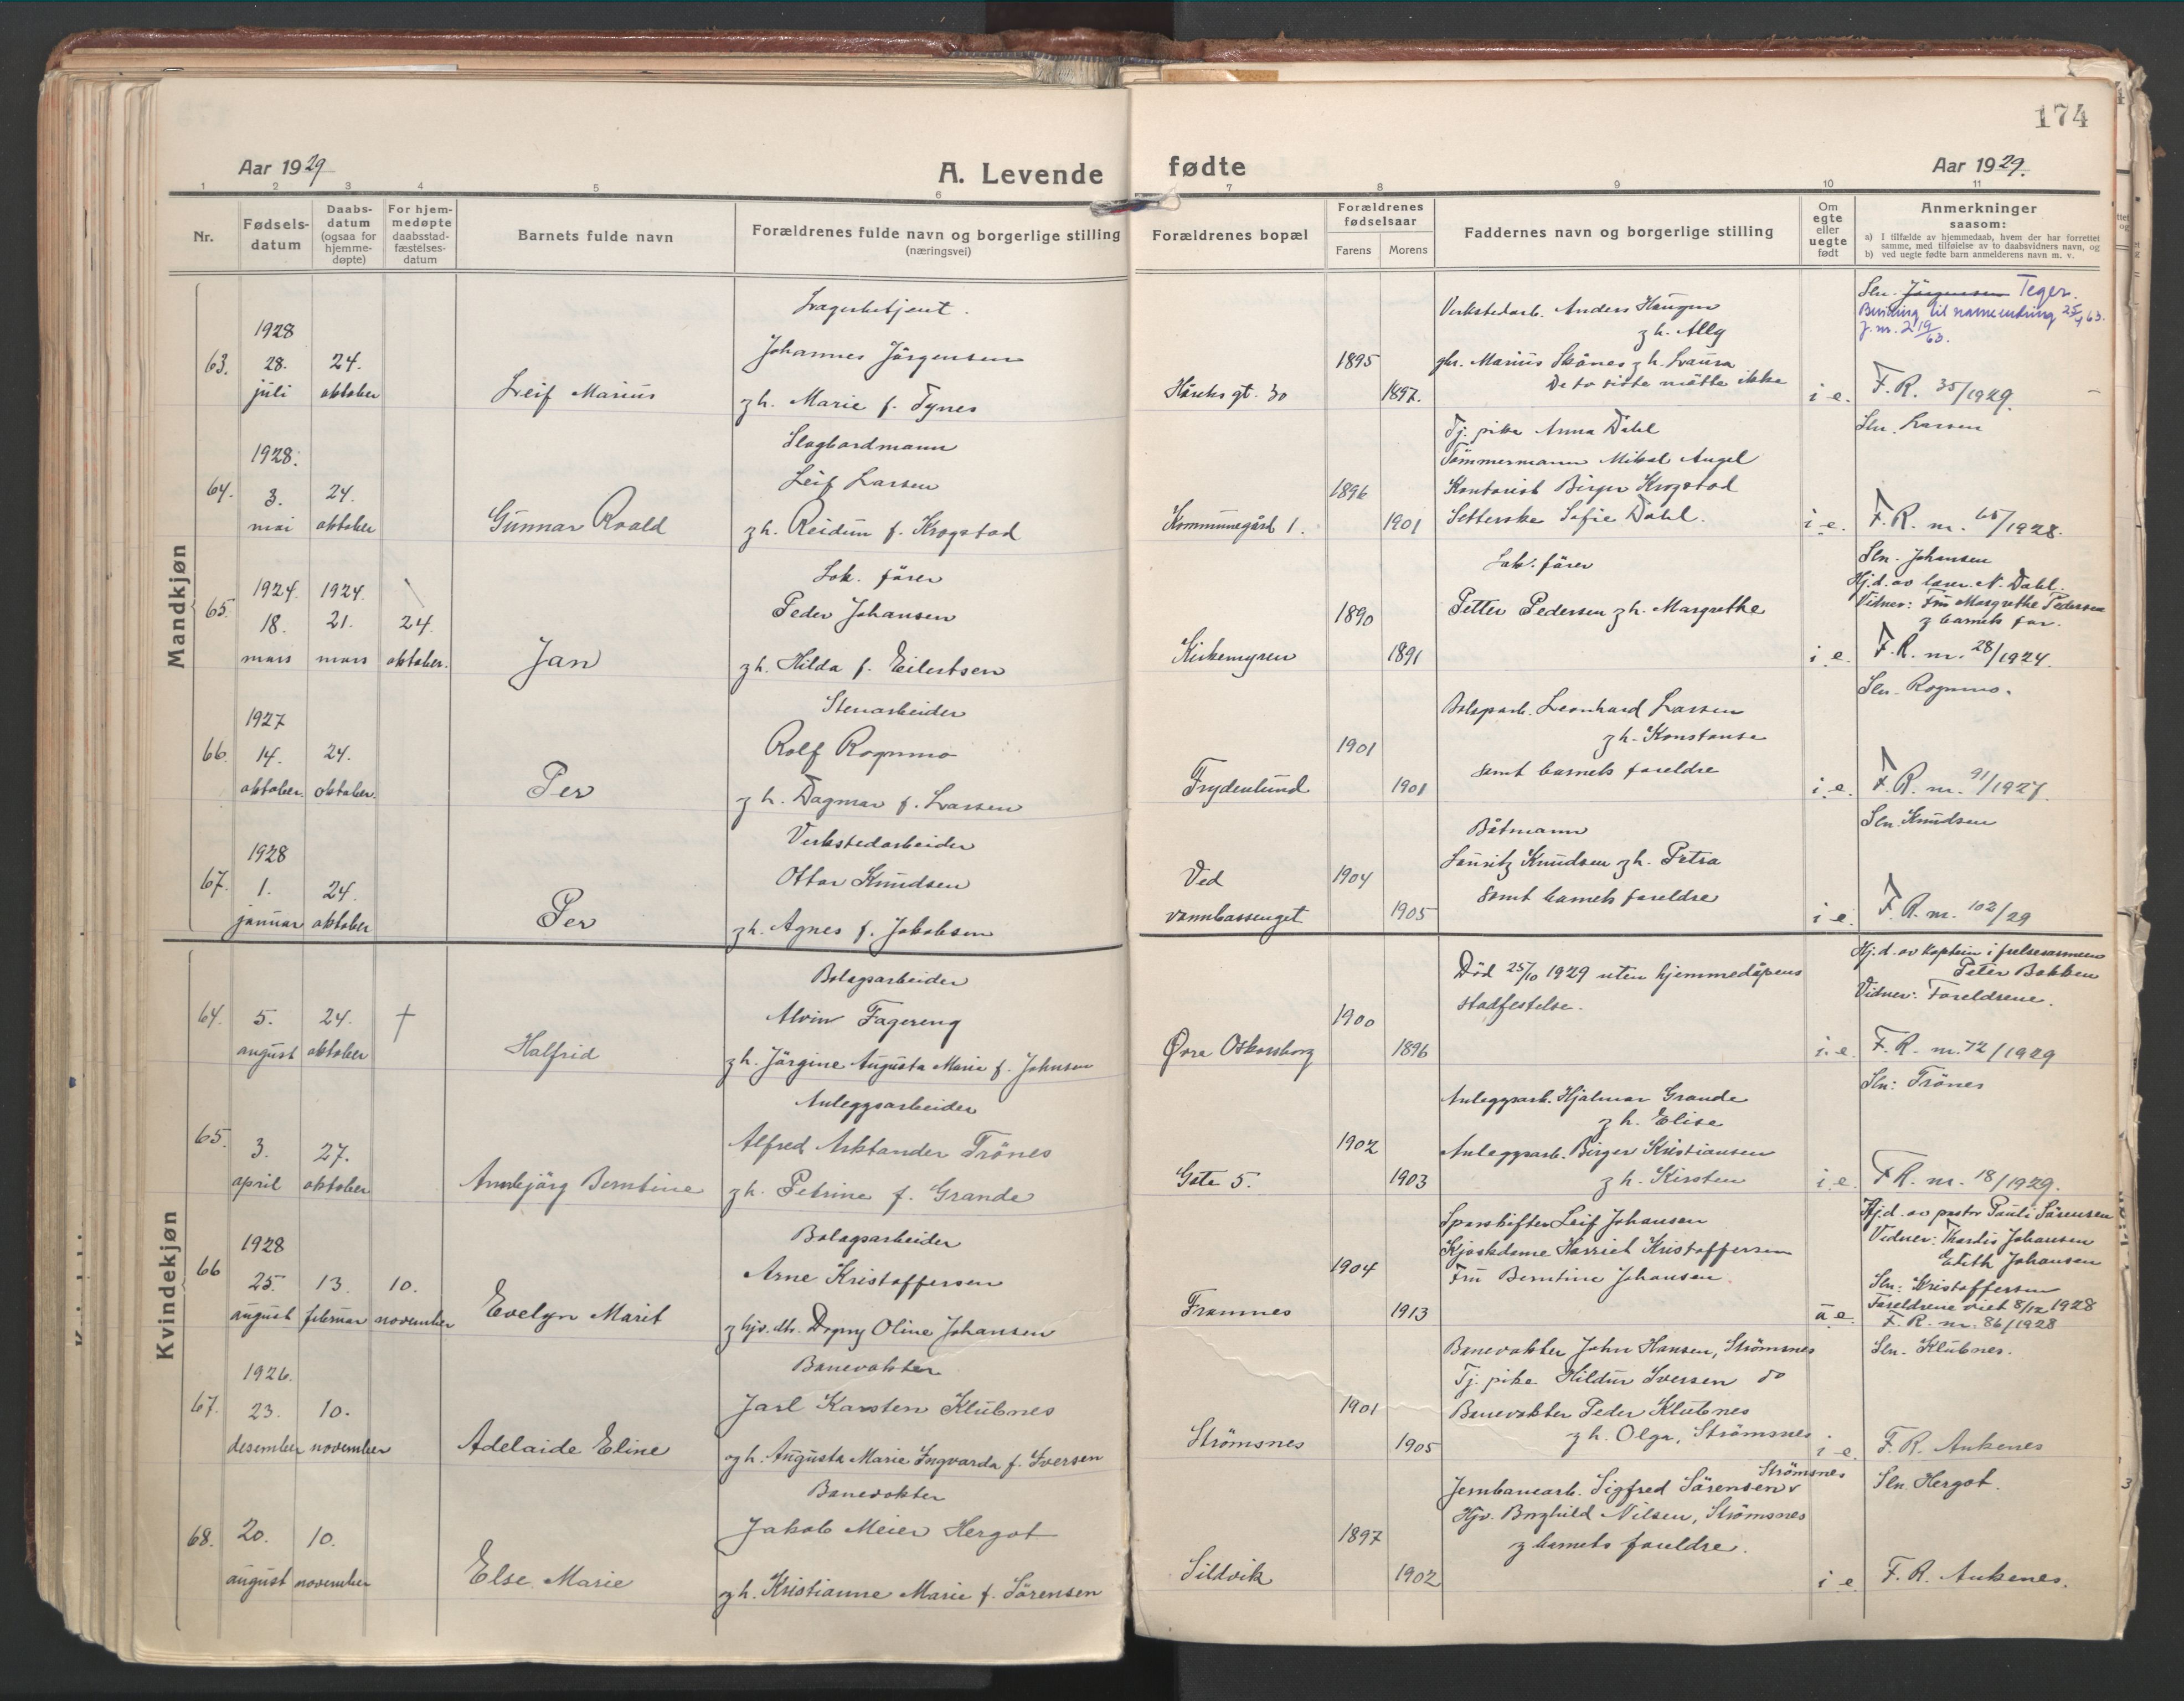 174
Aar 1929
A. Levende fødte
Aar 1929.
1 2 3 4 5 6 7 8 9 10 11
Nr.
Fødsels-
datum
Daabs-
datum
(ogsaa for
hjemme-
døpte)
For hjem-
medøpte
daabsstad-
fæstelses-
datum
Barnets fulde navn
Forældrenes fulde navn og borgerlige stilling
(næringsvei)
Forældrenes bopæl
Forældrenes
fødselsaar
Farens Morens
Faddernes navn og borgerlige stilling
Om
egte
eller
uegte
født
Anmerkninger
saasom:
a) I tilfælde av hjemmedaab, hvem der har forrettet
samme, med tilføielse av to daabsvidners navn, og
b) ved uegte fødte barn anmelderens navn m. v.
Mandkjøn
63.
1928
28.
juli
24.
oktober
Leif Marius
Lagerbetjent.
Johannes Jørgensen
og h. Marie f. Tynes
Håreks gt. 30
1895
1897.
Verkstedarb. Anders Haugen
og h. Ally
gbr. Marius Skånes og h. Laura
De to siste måtte ikke
i. e.
Sln. Jørgensen Teger.
Bevilling til navneendring 25/9 63.
J. nr. 219/63.
F. R. 35/1929.
64.
1928.
3.
mai
24.
oktober
Gunnar Roald
Slagbordmann
Leif Larsen
og h. Reidun f. Krogstad
Kommunegård 1.
1896
1901
Tj. pike Anna Dahl
Tømmermann Mikal Angel
Kontorist Birger Krogstad
Setterske Sofie Dahl.
i. e.
Sln. Larsen
F. R. nr. 65/1928.
65.
1924.
18.
mars
1924.
21.
mars
24.
oktober.
Jan
Lok. fører
Peder Johansen
og h. Hilda f. Eilertsen
Kirkemyren
1890
1891
Lok. fører
Petter Pedersen og h. Margrethe
i. e.
Sln. Johansen
Hj.d. av lærer N. Dahl.
Vidner: Fru Margrethe Pedersen
og barnets far.
F. R. nr. 28/1924.
66.
1927
14.
oktober.
24.
oktober.
Per
Stenarbeider
Rolf Rognmo
og h. Dagmar f. Larsen
Frydenlund
1901
1901
Bolagsarb. Leonhard Larsen
og h. Konstanse
samt barnets foreldre
i. e.
Sln. Rognmo.
F. R. nr. 91/1927.
67.
1928
1.
januar
24.
oktober
Per
Verkstedarbeider
Ottar Knudsen
og h. Agnes f. Jakobsen
Ved
vannbassenget
1904
1905
Båtmann
Lauritz Knudsen og h. Petra
samt barnets foreldre
i. e.
Sln. Knudsen
F. R. nr. 102/29
Kvindekjøn
64.
5.
august
24.
oktober
†
Halfrid
Bolagsarbeider
Alvin Fagereng
og h. Jørgine Augusta Marie f. Johnsen
Øvre Oskarsborg
1900
1896
Død 25/10 1929 uten hjemmedåpens
stadfestelse.
i. e.
Hj.d. av kaptein i frelsesarmeen
Peter Bakken
Vidner: Foreldrene.
F. R. nr. 72/1929
65.
3.
april
27.
oktober
Annbjørg Berntine
Anleggsarbeider
Alfred Arktander Trønes
og h. Petrine f. Grande
Gate 5.
1902
1903
Anleggsarb. Hjalmar Grande
og h. Elise
Anleggsarb. Birger Kristiansen
og h. Kirsten
i. e.
Sln: Trønes
F R. nr. 18/1929.
66
1928
25.
august
13.
februar
10.
november
Evelyn Marit
Bolagsarbeider
Arne Kristoffersen
og hjv. dtr. Dagny Oline Johansen
Framnes
1904
1913
Sporskifter Leif Johansen
Kjoskdame Harriet Kristoffersen
Fru Berntine Johansen.
u. e.
Hj.d. av pastor Pauli Sørensen
Vidner: Thordis Johansen
Edith Johansen
Sln: Kristoffersen
Foreldrene viet 8/12 1928
F. R. nr. 86/1928
67.
1926.
23.
desember
10.
november
Adelaide Eline
Banevokter
Jarl Karsten Klubnes
og h. Augusta Marie Ingvarda f. Iversen
Strømsnes
1901
1905
Banevokter John Hansen, Strømsnes
Tj. pike Hildur Iversen do
Banevokter Peder Klubnes
og h. Olga, Strømsnes
i. e.
Sln. Klubnes.
F. R. Ankenes
68.
20.
august
10.
november
Else Marie
Banevokter
Jakob Meier Hergot
og h. Kristianne Marie f. Sørensen
Sildvik
1897
1902
Strømsnes
Jernbanearb. Sigfred Sørensen
Hjv. Borghild Nilsen, Strømsnes
og barnets foreldre.
i. e.
Sln. Hergot.
F. R. Ankenes.